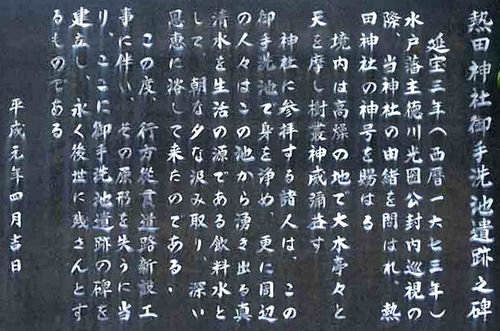 熱田神社御手洗池遺跡之碑
延宝三年(西暦一六七三年)
水戸藩主徳川光圀公封内巡視の
際、当神社の由緒を問はれ、熱
田神社の神号を賜はる
境内は高燥の地で大木亭々と
天を摩し樹叢神威彌益す
神社に参拝する諸人は、この
御手洗池で身を浄め、更に周辺
の人々はこの池から湧き出る真
清水を生活の源である飲料水と
して、朝な夕な汲み取り、深い
恩恵に浴して来たのである、
この度、行方縦貫道路新設工
事に伴い、その原形を失うに当
り、ここに御手洗池遺跡の碑を
建立し、永く後世に残さんとす
るものである
平成元年四月吉日